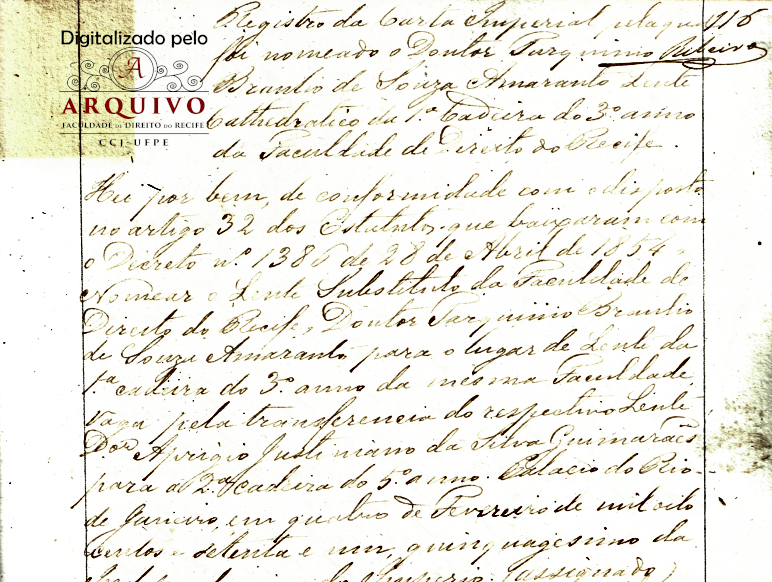 Digitalizado pelo
A
ARQUIVO
FACULDADE DE DIREITO DO RECIFE
CCJ-UFPE
Registro da Carta Imperial, pela qual 116
foi nomeado o Doutor Tarquinio Ribeiro
Braulio de Souza Amaranto Lente
Cathedratico da 1.ª Cadeira do 3.º anno
da Faculdade de Direito do Recife.
Hei por bem, de conformidade com o disposto
no artigo 32 dos Estatutos, que baixaram com
o Decreto n.º 1386 de 28 de Abril de 1854,
Nomear o Lente Substituto da Faculdade de
Direito do Recife, Doutor Tarquinio Braulio
de Souza Amaranto para o lugar de Lente da
1.ª cadeira do 3.º anno da mesma Faculdade,
vaga pela transferencia do respectivo Lente
Dor Aprigio Justiniano da Silva Guimarães
para a 2.ª cadeira do 5.º anno. Palacio do Rio
de Janeiro, em quatro de Fevereiro de mil oito
centos e setenta e um, quinquagesimo da
do Imperio. (assignado)